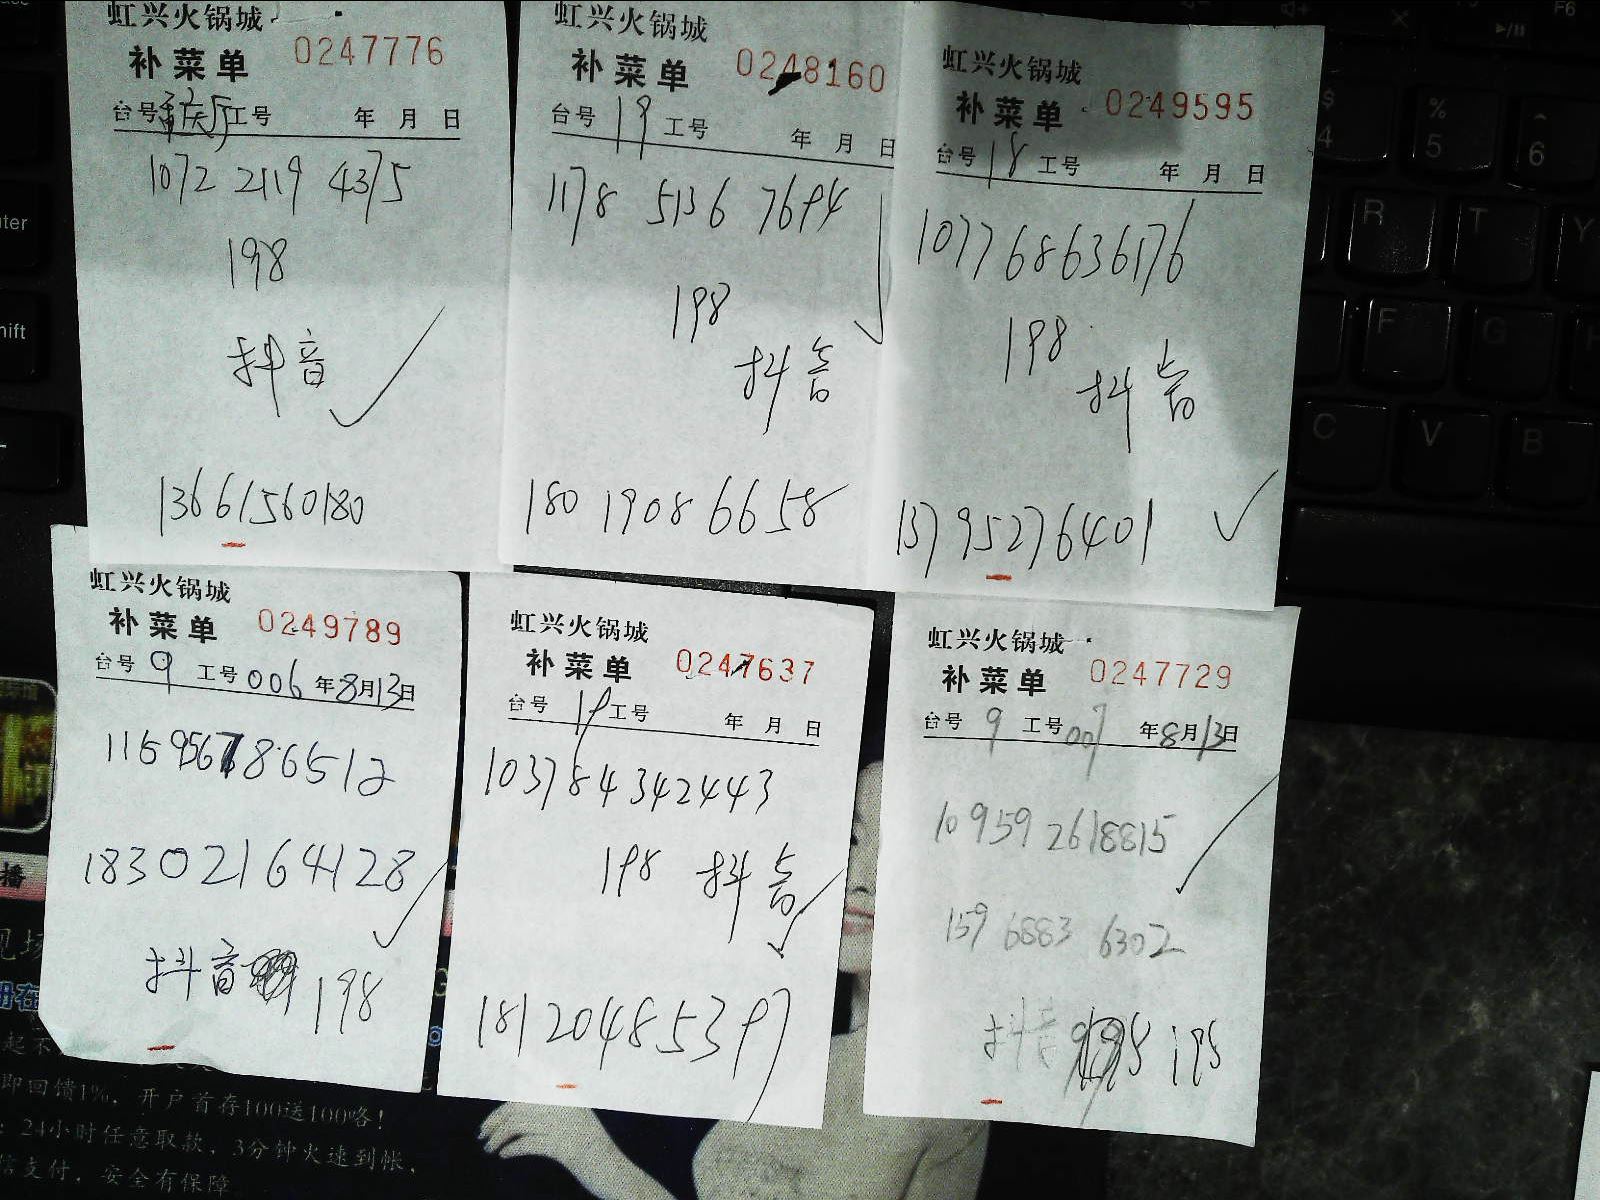 虹兴火锅城
补菜单 0247776
台号 重庆厅 工号 年 月 日
1072 2119 4375
198
抖音
13661560180
虹兴火锅城
补菜单 0248160
台号 19 工号 年 月 日
1178 5136 7694
198
抖音
180 1908 6658
虹兴火锅城
补菜单 0249595
台号 18 工号 年 月 日
107768636176
198
抖音
13795276401
虹兴火锅城
补菜单 0249789
台号 9 工号 006 年 8月13日
18302164128
抖音 198
虹兴火锅城
补菜单 0247637
台号 19 工号 年 月 日
103784342443
198 抖音
18120485397
虹兴火锅城
补菜单 0247729
台号 9 工号 007 年 8月13日
10959 2618815
159 6883 6302
抖音 198
即回馈1%，开户首存100送100咯！
24小时任意取款，3分钟火速到帐，
信支付，安全有保障
$
4
%
5
^
6
R
T
Y
F
G
C
V
B
F6